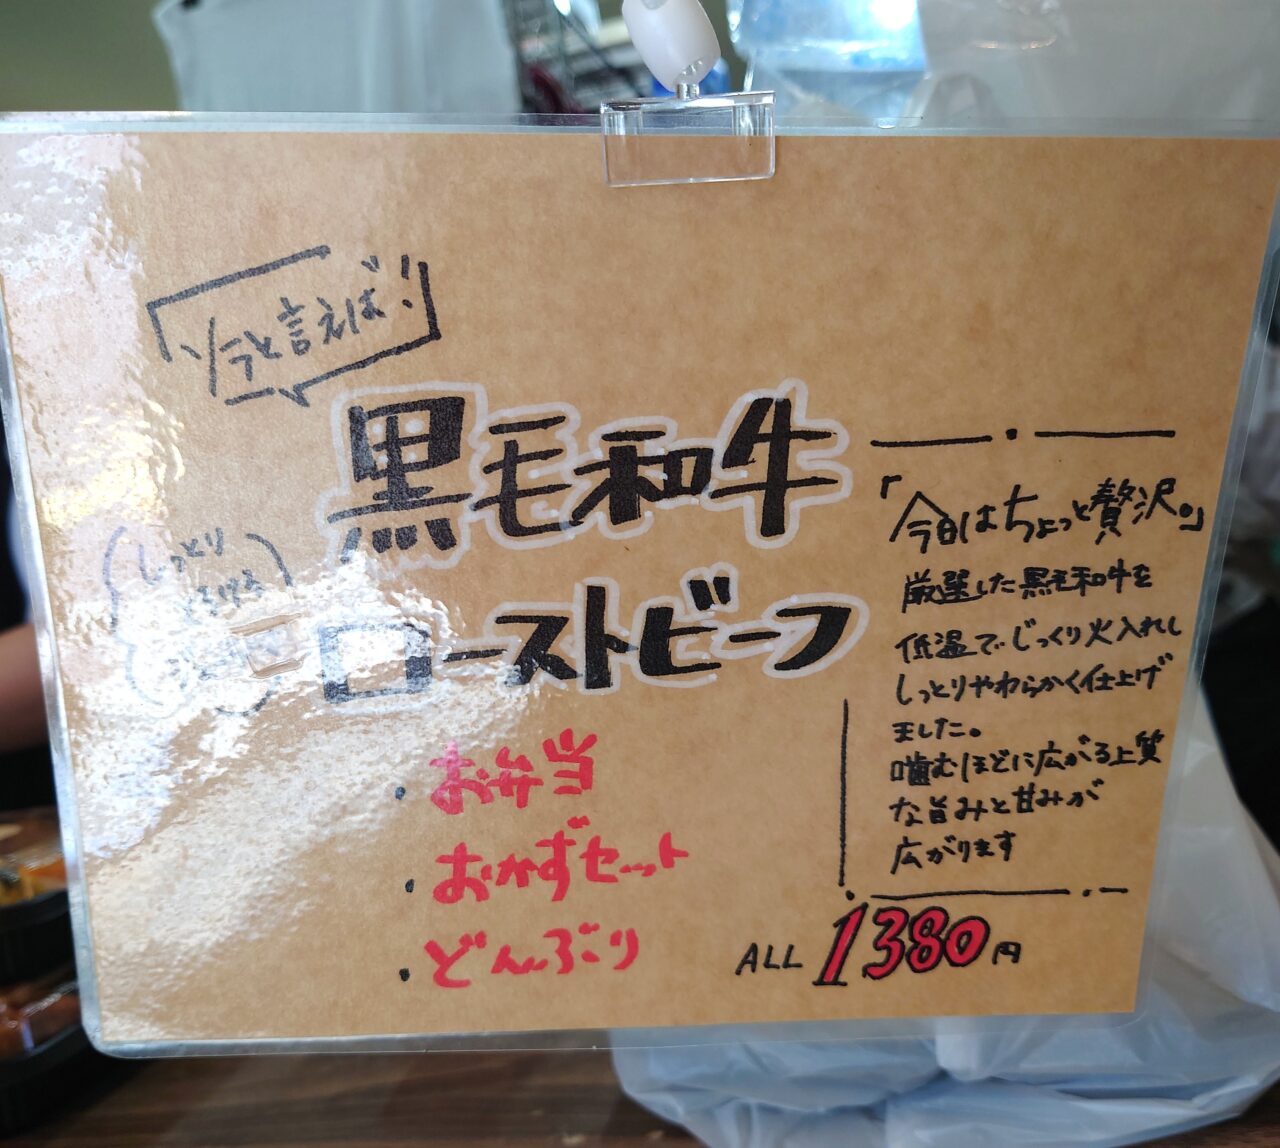 今と言えば
黒毛和牛
ローストビーフ
しっとり
とろける
・お弁当
・おかずセット
・どんぶり
「今日はちょっと贅沢。」
厳選した黒毛和牛を
低温でじっくり火入れし
しっとりやわらかく仕上げ
ました。
噛むほどに広がる上質
な旨みと甘みが
広がります
ALL 1380円